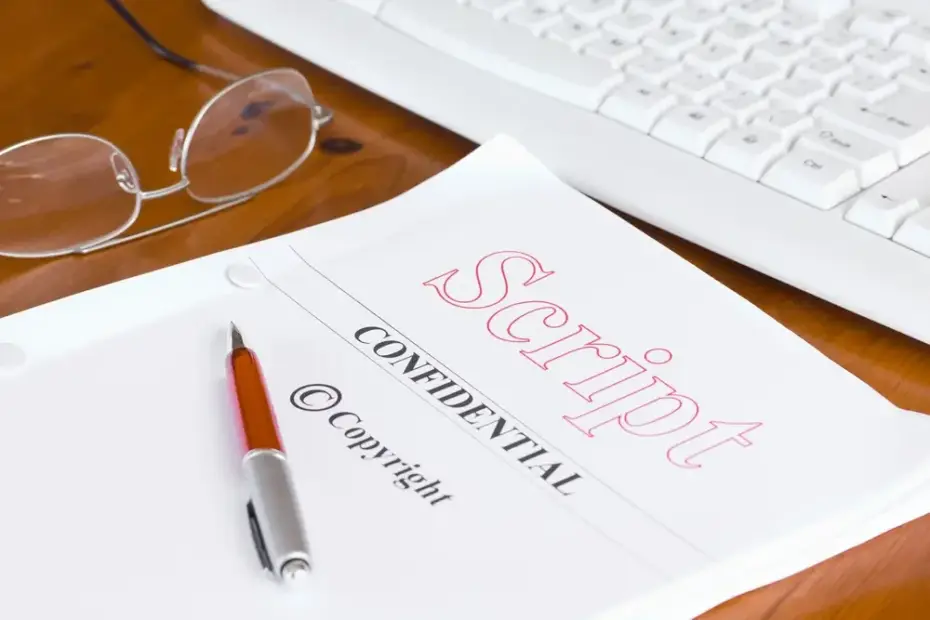 Script
CONFIDENTIAL
© Copyright